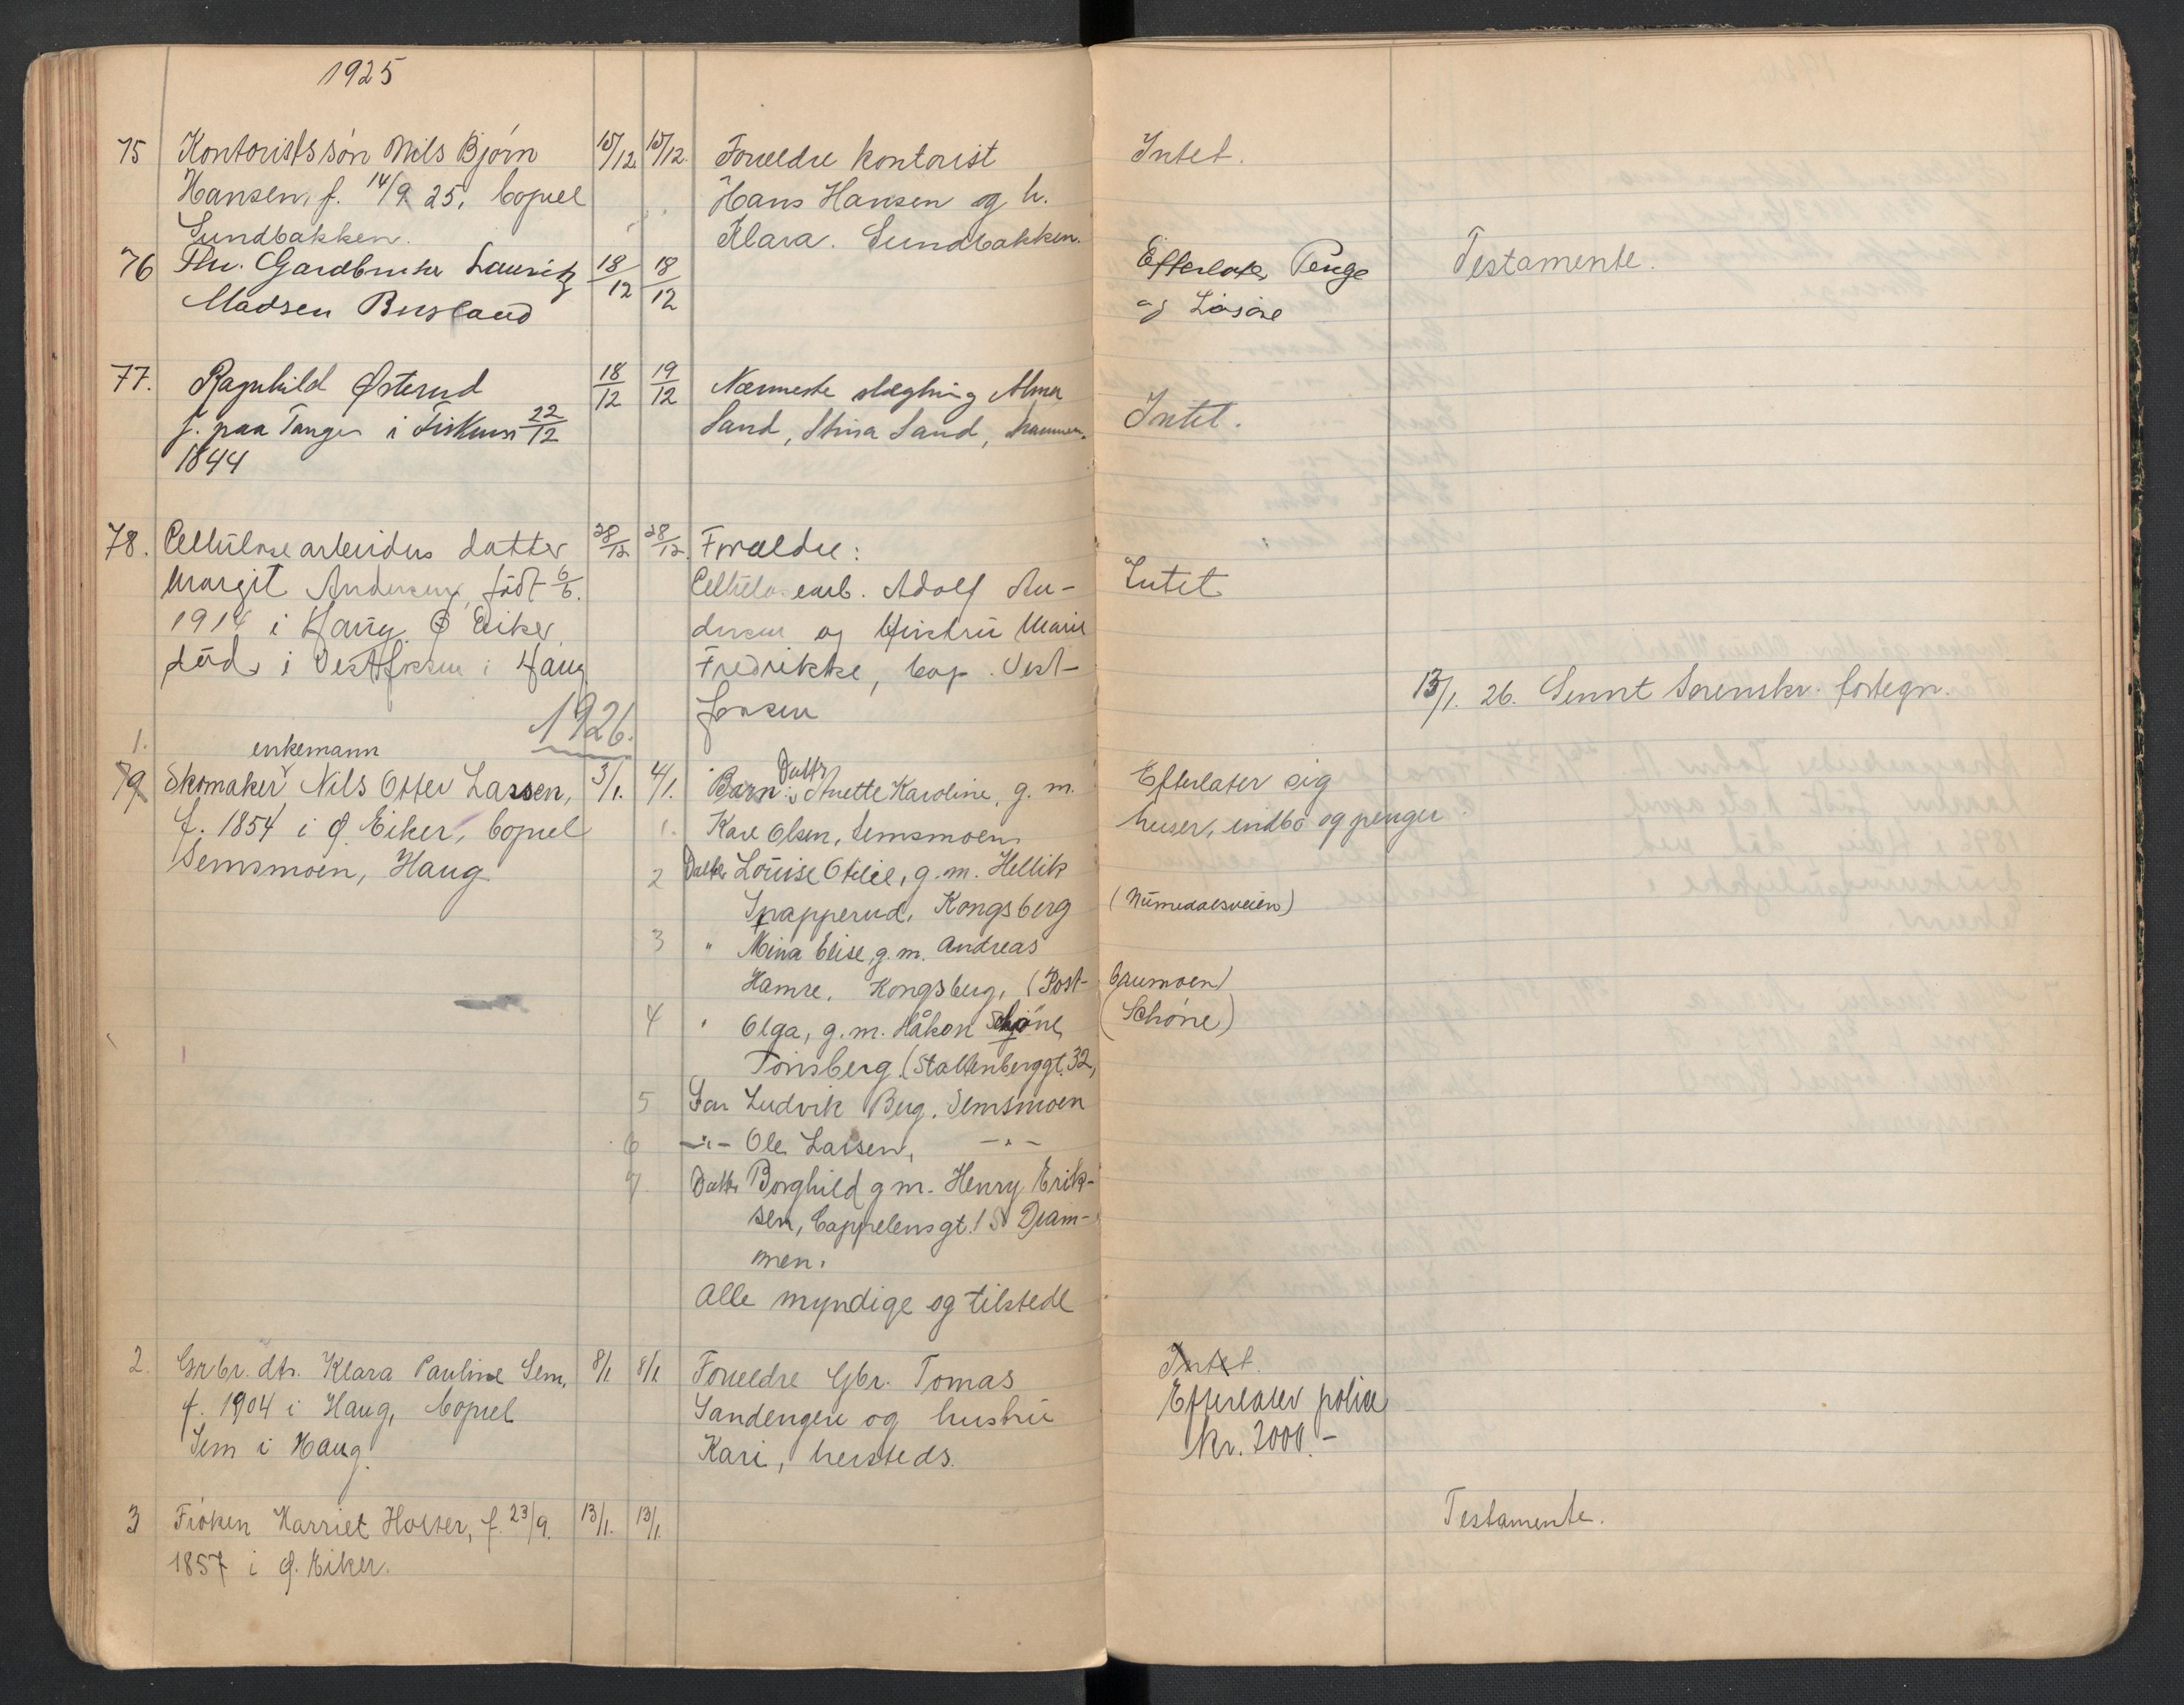 1925
75 Kontoristssøn Nils Bjørn 15/12 15/12. Forældre kontorist Intet.
Hansen, f. 14/9 25, bopæl Hans Hansen og h.
Sundbakken. Klara. Sundbakken.
76 Fhv. Gardbruker Lauritz 18/12 18/12 Efterlater Penge Testamente.
Madsen Busland og Løsøre
77. Ragnhild Østerud 18/12 19/12 Nærmeste slegtning Alma
f. paa Tangen i Fiskum 22/12 Sand, Stina Sand, Intet.
1844
78. Cellulosearbeiders datter 28/12 28/12. Forældre:
Margit Andersen, født 6/6. Cellulosearb. Adolf An- Intet
1914 i Haug Ø Eiker dersen og hustru Marie
død i Vestfossen i Haug Fredrikke, bop. Vest-
13/1. 26. Sennt Sorenskr. fortegn.
1926. fossen
1. enkemann
79 Skomaker Nils Otter Larsen, 3/1. 4/1. Barn: Datter Anette Karoline, g. m. Efterlater sig
f. 1854 i Ø. Eiker, bopæl 1. Kare Olsen, Semsmoen huser, indbo og penger
Semsmoen, Haug 2 Datter Louise Otilie, g. m. Hellik
Snapperud, Kongsberg (Numedalsveien)
3 " Mina Elise, g. m. Andreas
Hamre, Kongsberg, (Post- brumoen)
4 " Olga, g. m. Håkon Schøne, (Schöne)
Tønsberg (Stoltenberggt. 32,
5 Søn Ludvik Berg, Semsmoen
6 -"- Ole Larsen, -"-
7. Datter Borghild g m. Henry Erik-
sen, Cappelensgt. 18 Dram-
men.
Alle myndige og tilstede
2. Grbr. dtr. Klara Pauline Sem, 8/1 8/1 Forældre Gbr. Tomas Intet.
f. 1904 i Haug, bopæl Sandengen og hustru Efterlater police
Sem i Haug. Kari, hersteds. kr. 2000.-
3 Frøken Harriet Holter, f. 23/9. 13/1. 13/1. Testamente.
1857 i Ø. Eiker.